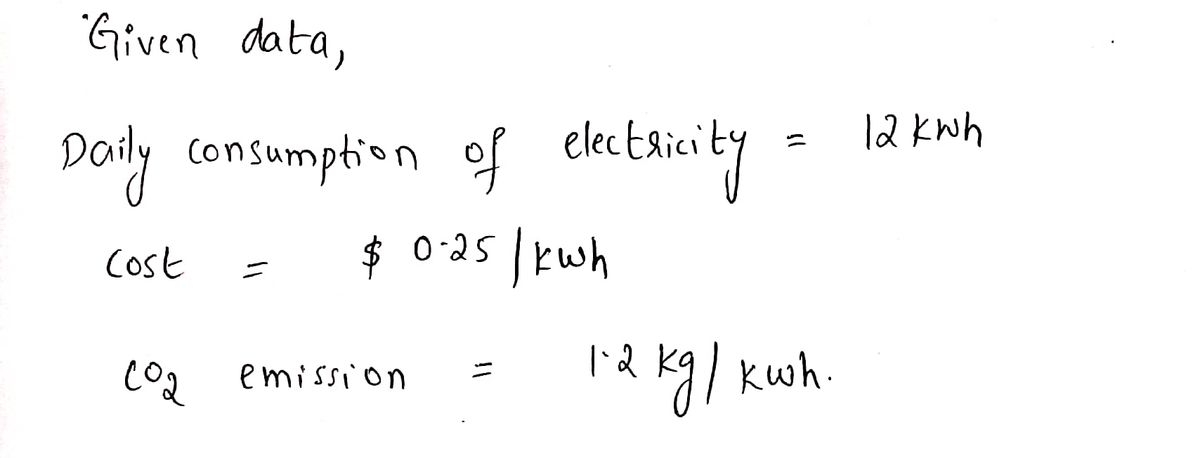 Given data,
Daily consumption of electricity = 12 kwh
Cost = $ 0.25 / kwh
CO2 emission = 1.2 kg / kwh.